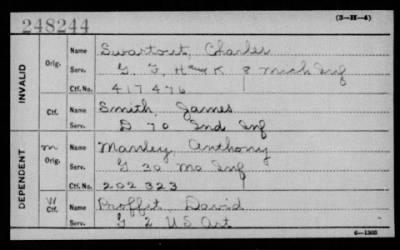 (3-H-4)
248244
INVALID
Orig.
Name Swartout, Charles
Serv. G. F, H and K 8 Mich Inf
Ctf. No. 417476
Ctf.
Name Smith, James
Serv. D 70 Ind Inf
DEPENDENT
m Orig.
Name Manley, Anthony
Serv. G 30 Mo Inf
Ctf. No. 202323
W Ctf.
Name Proffit, David
Serv. G 2 US Art
6-1303